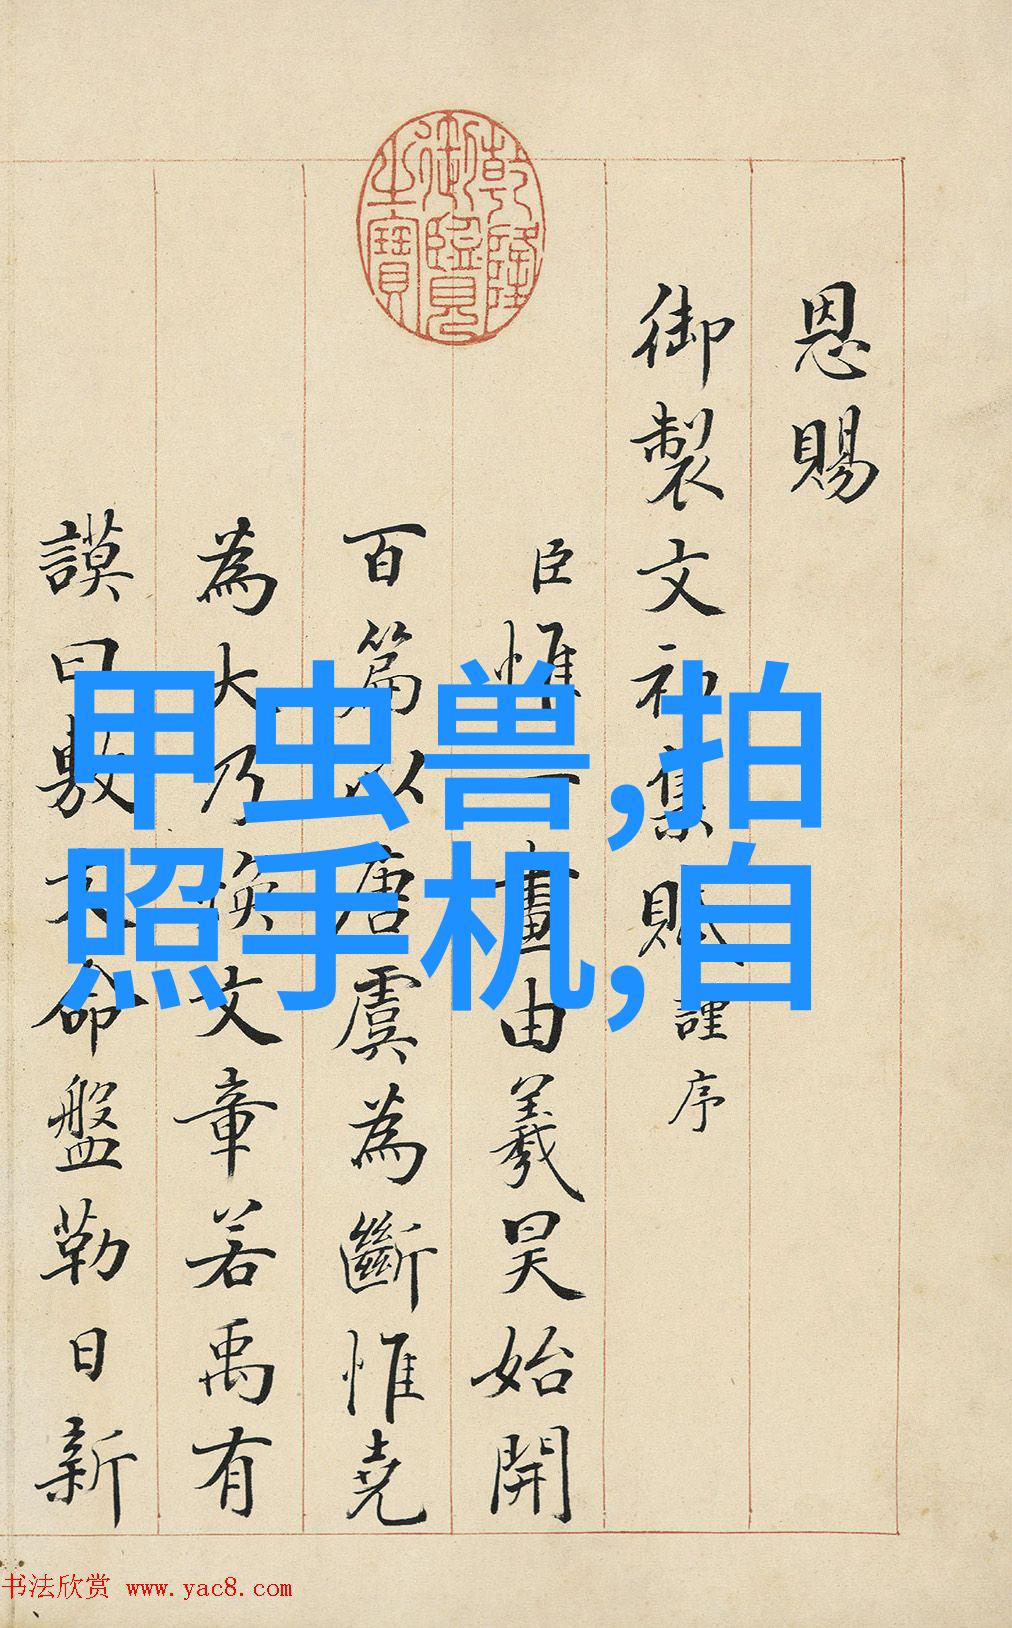 乾隆御覽之寶
恩賜
御製文初集賦謹序
臣惟一畫由羲昊始開
百篇以唐虞為斷惟堯
為大乃煥文章若禹有
謨曰敷文命盤勒日新
甲虫兽,拍
照手机,自
书法欣赏 www.yac8.com